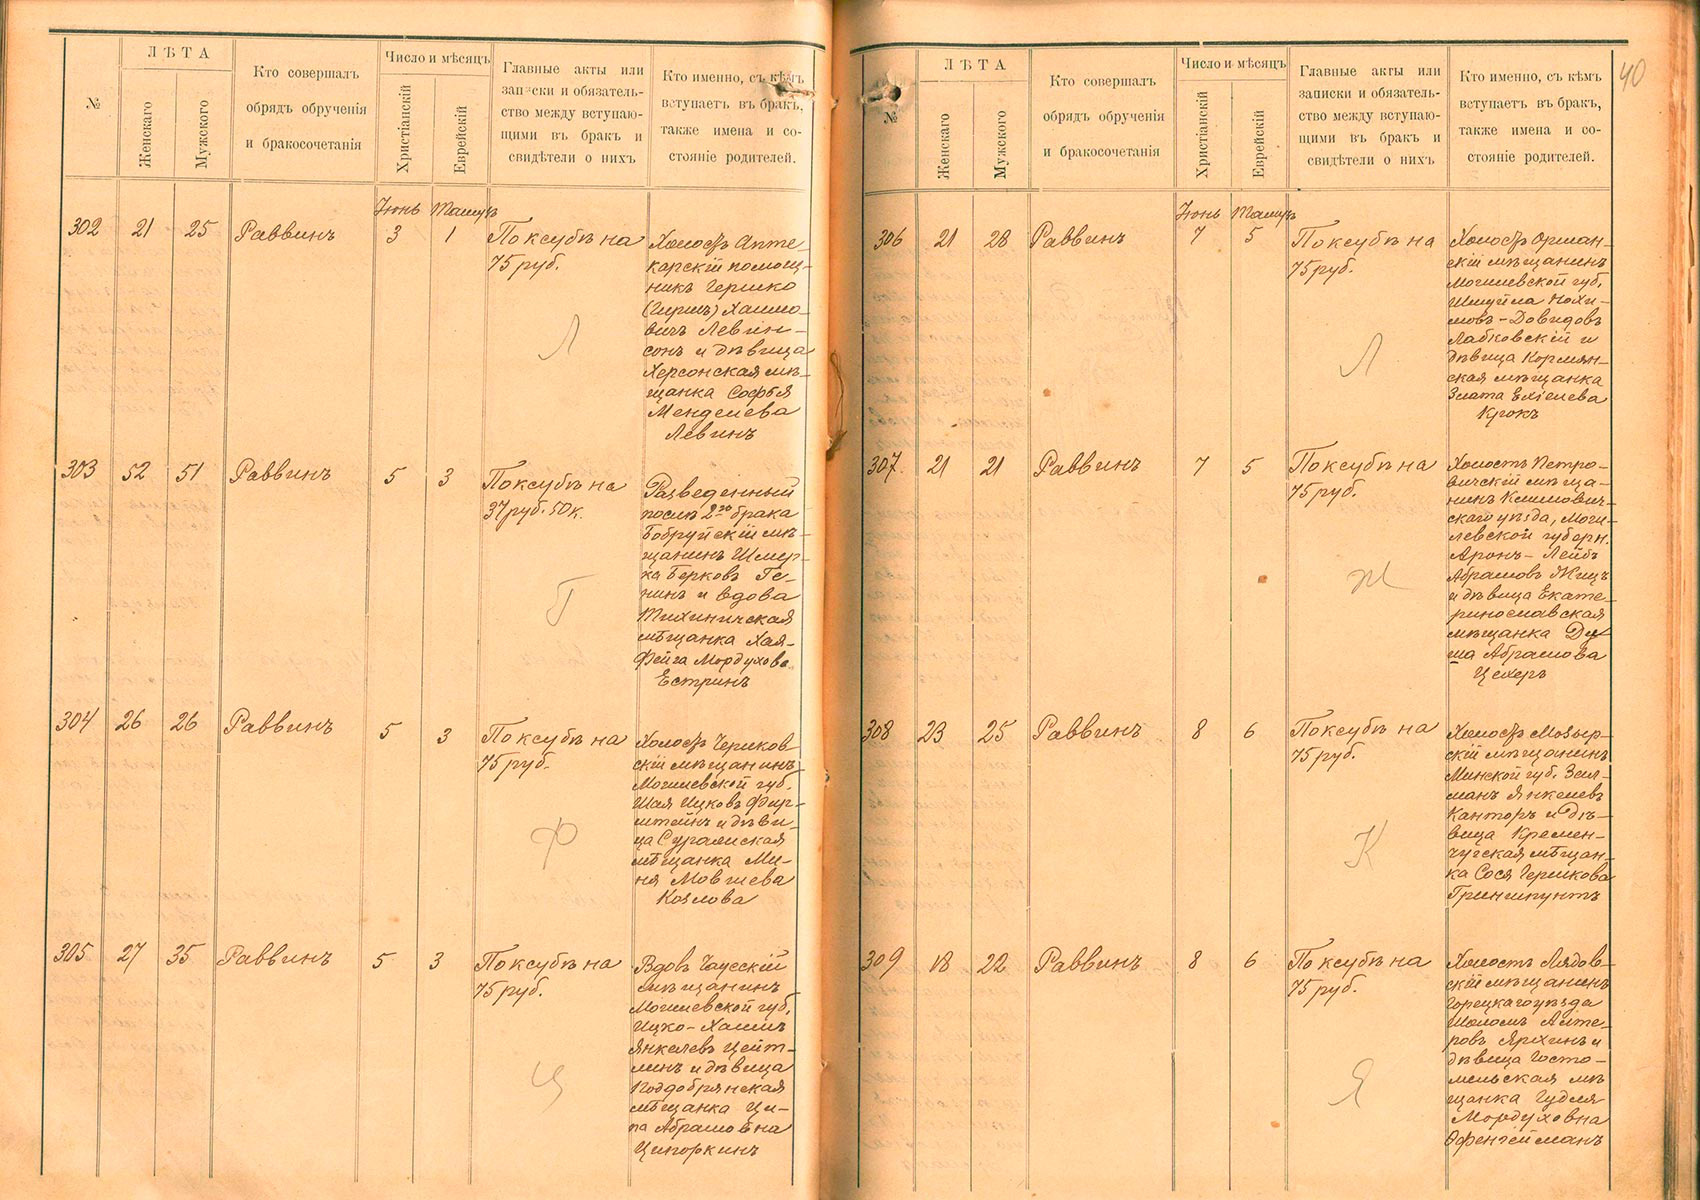 №
ЛѢТА
Женскаго
Мужского
Кто совершалъ
обрядъ обрученія
и бракосочетанія
Число и мѣсяцъ
Христіанскій
Еврейскій
Главные акты или
записки и обязатель-
ство между вступаю-
щими въ бракъ и
свидѣтели о нихъ
Кто именно, съ кѣмъ
вступаетъ въ бракъ,
также имена и со-
стояніе родителей.
Іюнь Тамузъ
302 21 25 Раввинъ 3 1 По ксубѣ на
75 руб.
Л
Холостъ Апте
карскій помощ-
никъ Гершко
(Гиршъ) Хаимо-
вичъ Левин-
сонъ и дѣвица
Херсонская мѣ-
щанка Софья
Менделева
Левинъ
303 52 51 Раввинъ 5 3 По ксубѣ на
37 руб. 50 к.
Г
Разведенный
послѣ 2го брака
Бобруйскій мѣ-
щанинъ Шмер-
ка Берковъ Ге-
нинъ и вдова
Тихиничская
мѣщанка Хая-
Фейга Мордухова
Естринъ
304 26 26 Раввинъ 5 3 По ксубѣ на
75 руб.
Ф
Холостъ Чериков-
скій мѣщанинъ
Могилевской губ.
Шая Ицковъ Фир-
штейнъ и дѣви-
ца
мѣщанка Ми-
ня Мовшева
Козлова
305 27 35 Раввинъ 5 3 По ксубѣ на
75 руб.
Ц
Вдовъ Чаусскій
мѣщанинъ
Могилевской губ.
Ицко-Хаимъ
Янкелевъ Цейт-
линъ и дѣвица
Поддобрянская
мѣщанка Ци-
па Абрамовна
Ципоркинъ
40
№
ЛѢТА
Женскаго
Мужского
Кто совершалъ
обрядъ обрученія
и бракосочетанія
Число и мѣсяцъ
Христіанскій
Еврейскій
Главные акты или
записки и обязатель-
ство между вступаю-
щими въ бракъ и
свидѣтели о нихъ
Кто именно, съ кѣмъ
вступаетъ въ бракъ,
также имена и со-
стояніе родителей.
Іюнь Тамузъ
306 21 28 Раввинъ 7 5 По ксубѣ на
75 руб.
Л
Холостъ Оршан-
скій мѣщанинъ
Могилевской губ.
Шмуйла Нохи-
мовъ-Довидовъ
Лабковскій и
дѣвица Кормян-
ская мѣщанка
Злата Еліелева
Крокъ
307. 21 21 Раввинъ 7 5 По ксубѣ на
75 руб.
Ж
Холостъ Петро-
вичскій мѣща-
нинъ Климович-
скаго уѣзда, Моги-
левской губерн.
Аронъ-Лейбъ
Абрамовъ Жицъ
и дѣвица Екате-
ринославская
мѣщанка Ду-
ша Абрамова
Цехеръ
308 23 25 Раввинъ 8 6 По ксубѣ на
75 руб.
К
Холостъ Мозыр-
скій мѣщанинъ
Минской губ. Зел-
манъ Янкелевъ
Канторъ и дѣ-
вица Кремен-
чугская мѣщан-
ка Сося Гершкова
Гриншпунтъ
309 18 22 Раввинъ 8 6 По ксубѣ на
75 руб.
Я
Холостъ Лядов-
скій мѣщанинъ
Горецкаго уѣзда
Шоломъ Алте-
ровъ Ярхинъ и
дѣвица Госто-
мельская мѣ
щанка Гудля
Мордуховна
Офенгейманъ